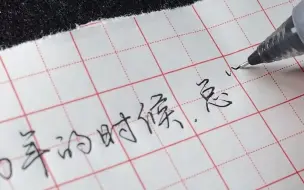 年的时候.总